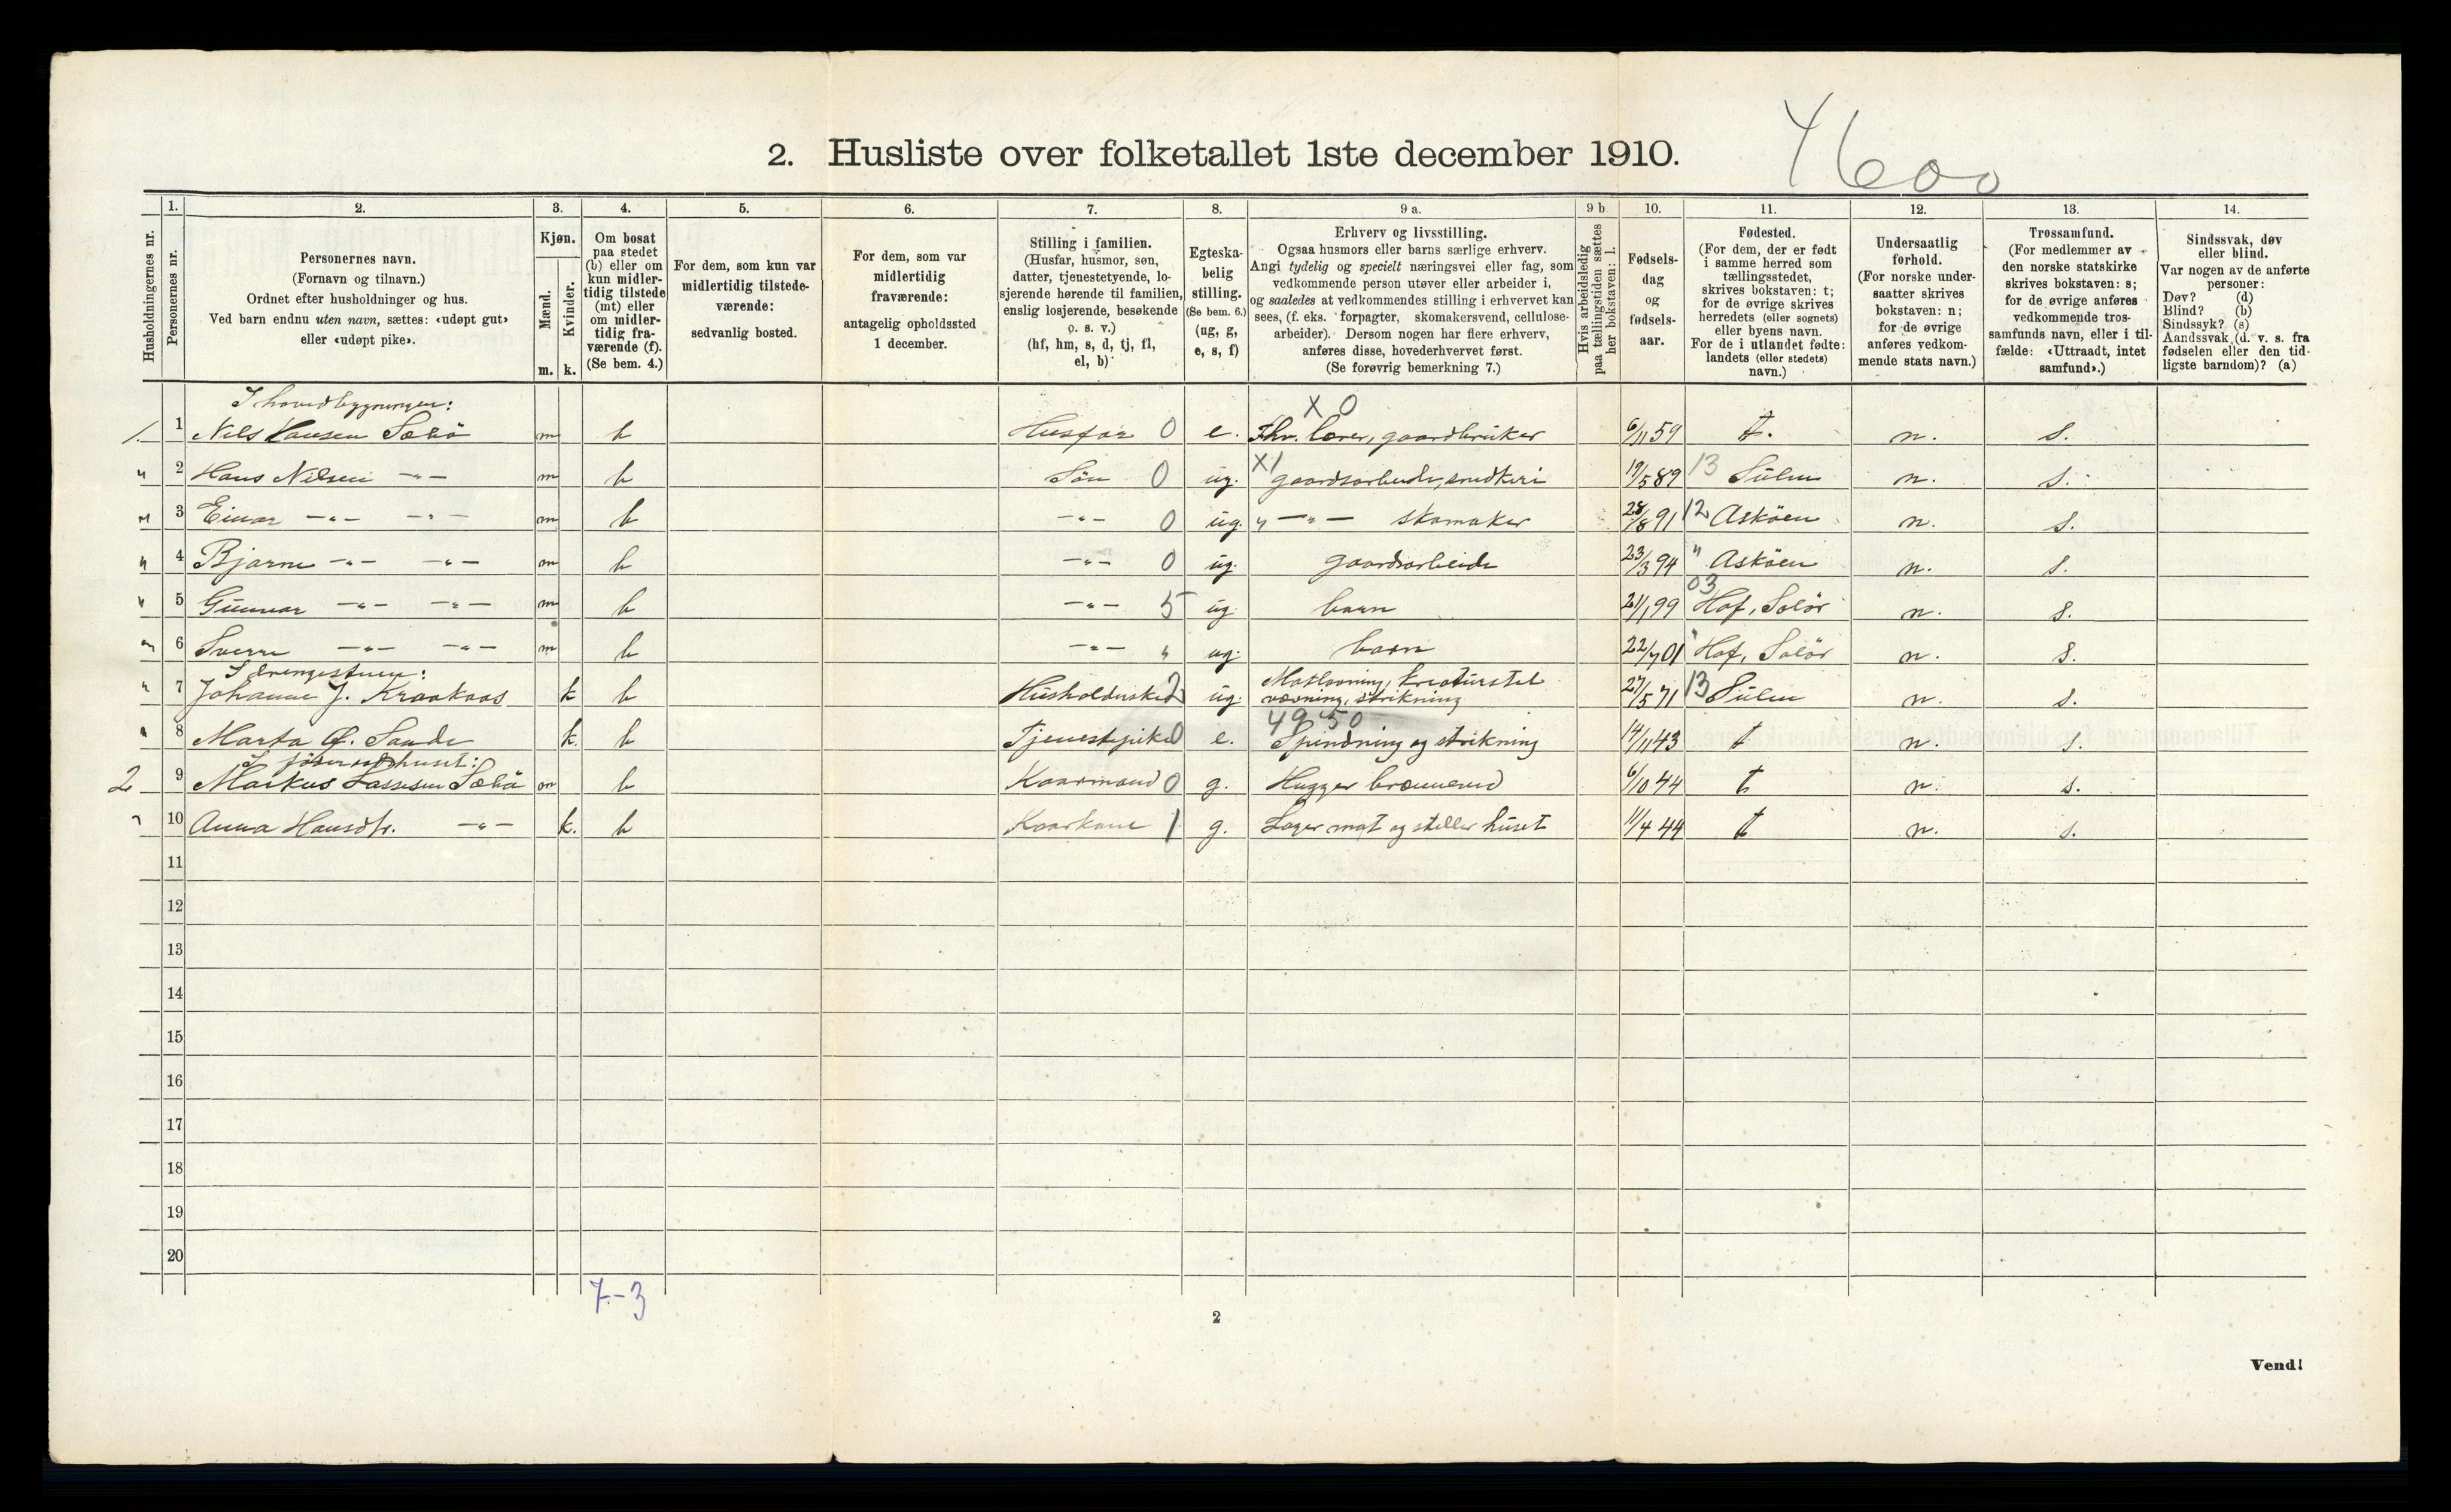 2. Husliste over folketallet 1ste december 1910.
4600
Husholdningernes nr.
1. Personernes nr.
2. Personernes navn.
(Fornavn og tilnavn.)
Ordnet efter husholdninger og hus.
Ved barn endnu uten navn, sættes: «udøpt gut»
eller «udøpt pike».
3. Kjøn.
Mænd. m.
Kvinder. k.
4. Om bosat
paa stedet
(b) eller om
kun midler-
tidig tilstede
(mt) eller
om midler-
tidig fra-
værende (f).
(Se bem. 4.)
5. For dem, som kun var
midlertidig tilstede-
værende:
sedvanlig bosted.
6. For dem, som var
midlertidig
fraværende:
antagelig opholdssted
1 december.
7. Stilling i familien.
(Husfar, husmor, søn,
datter, tjenestetyende, lo-
sjerende hørende til familien,
enslig losjerende, besøkende
o. s. v.)
(hf, hm, s, d, tj, fl,
el, b)
8. Egteska-
belig
stilling.
(Se bem. 6.)
(ug, g,
e, s, f)
9 a. Erhverv og livsstilling.
Ogsaa husmors eller barns særlige erhverv.
Angi tydelig og specielt næringsvei eller fag, som
vedkommende person utøver eller arbeider i,
og saaledes at vedkommendes stilling i erhvervet kan
sees, (f. eks. forpagter, skomakersvend, cellulose-
arbeider). Dersom nogen har flere erhverv,
anføres disse, hovederhvervet først.
(Se forøvrig bemerkning 7.)
9 b Hvis arbeidsledig
paa tællingstiden sættes
her bokstaven: l.
10. Fødsels-
dag
og
fødsels-
aar.
11. Fødested.
(For dem, der er født
i samme herred som
tællingsstedet,
skrives bokstaven: t;
for de øvrige skrives
herredets (eller sognets)
eller byens navn.
For de i utlandet fødte:
landets (eller stedets)
navn.)
12. Undersaatlig
forhold.
(For norske under-
saatter skrives
bokstaven: n;
for de øvrige
anføres vedkom-
mende stats navn.)
13. Trossamfund.
(For medlemmer av
den norske statskirke
skrives bokstaven: s;
for de øvrige anføres
vedkommende tros-
samfunds navn, eller i til-
fælde: «Uttraadt, intet
samfund».)
14. Sindssvak, døv
eller blind.
Var nogen av de anførte
personer:
Døv? (d)
Blind? (b)
Sindssyk? (s)
Aandssvak (d. v. s. fra
fødselen eller den tid-
ligste barndom)? (a)
I hovedbygningen: X 0
1. 1 Nils Hansen Sæbö m b Husfar 0 e. Fhv. lærer, gaardbruker 6/11 59 t. n. s.
" 2 Hans Nilsen -"- m b Sön 0 ug. X1 gaardsarbeide, snedkeri 19/5 89 13 Sulen n. s.
" 3 Einar -"- -"- m b -"- 0 ug. " -"- skomaker 28/8 91 12 Asköen n. s.
" 4 Bjarne -"- -"- m b -"- 0 ug. gaardsarbeide 23/3 94 " Asköen n. s.
" 5 Gunnar -"- -"- m b -"- 5 ug. barn 21/1 99 03 Hof, Solör n. s.
" 6 Sverre -"- -"- m b -"- " ug. barn 22/7 01 " Hof, Solör n. s.
I drengestuen:
" 7 Johanne J. Kraakaas k b Husholderske 2 ug. Matlavning, kreaturstel
vævning, strikning 27/5 71 13 Sulen n. s.
49 50
" 8 Marta O. Sande k. b Tjenestepike 0 e. Spindning og strikning 14/11 43 t n. s.
I föderaadshuset:
2 9 Markus Lassesen Sæbö m b Kaarmand 0 g. Hugger brænneved 6/10 44 t n. s.
" 10 Anna Hansdtr. -"- k. b Kaarkone 1 g. Lager mat og steller huset 11/4 44 t n. s.
11
12
13
14
15
16
17
18
19
20
7-3
2
Vend!